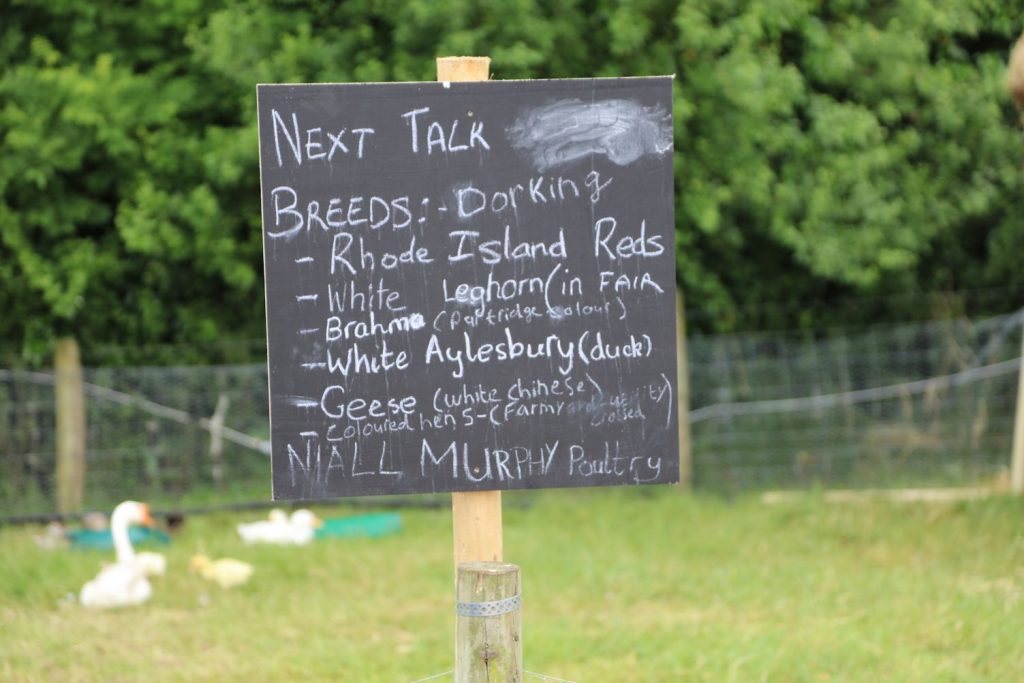 NEXT TALK
BREEDS:- Dorking
- Rhode Island Reds
- White Leghorn (in FAIR
- Brahma (partridge colour)
- White Aylesbury (duck)
- Geese (white chinese)
- coloured hens - (Farmyard utility crossed
NIALL MURPHY Poultry